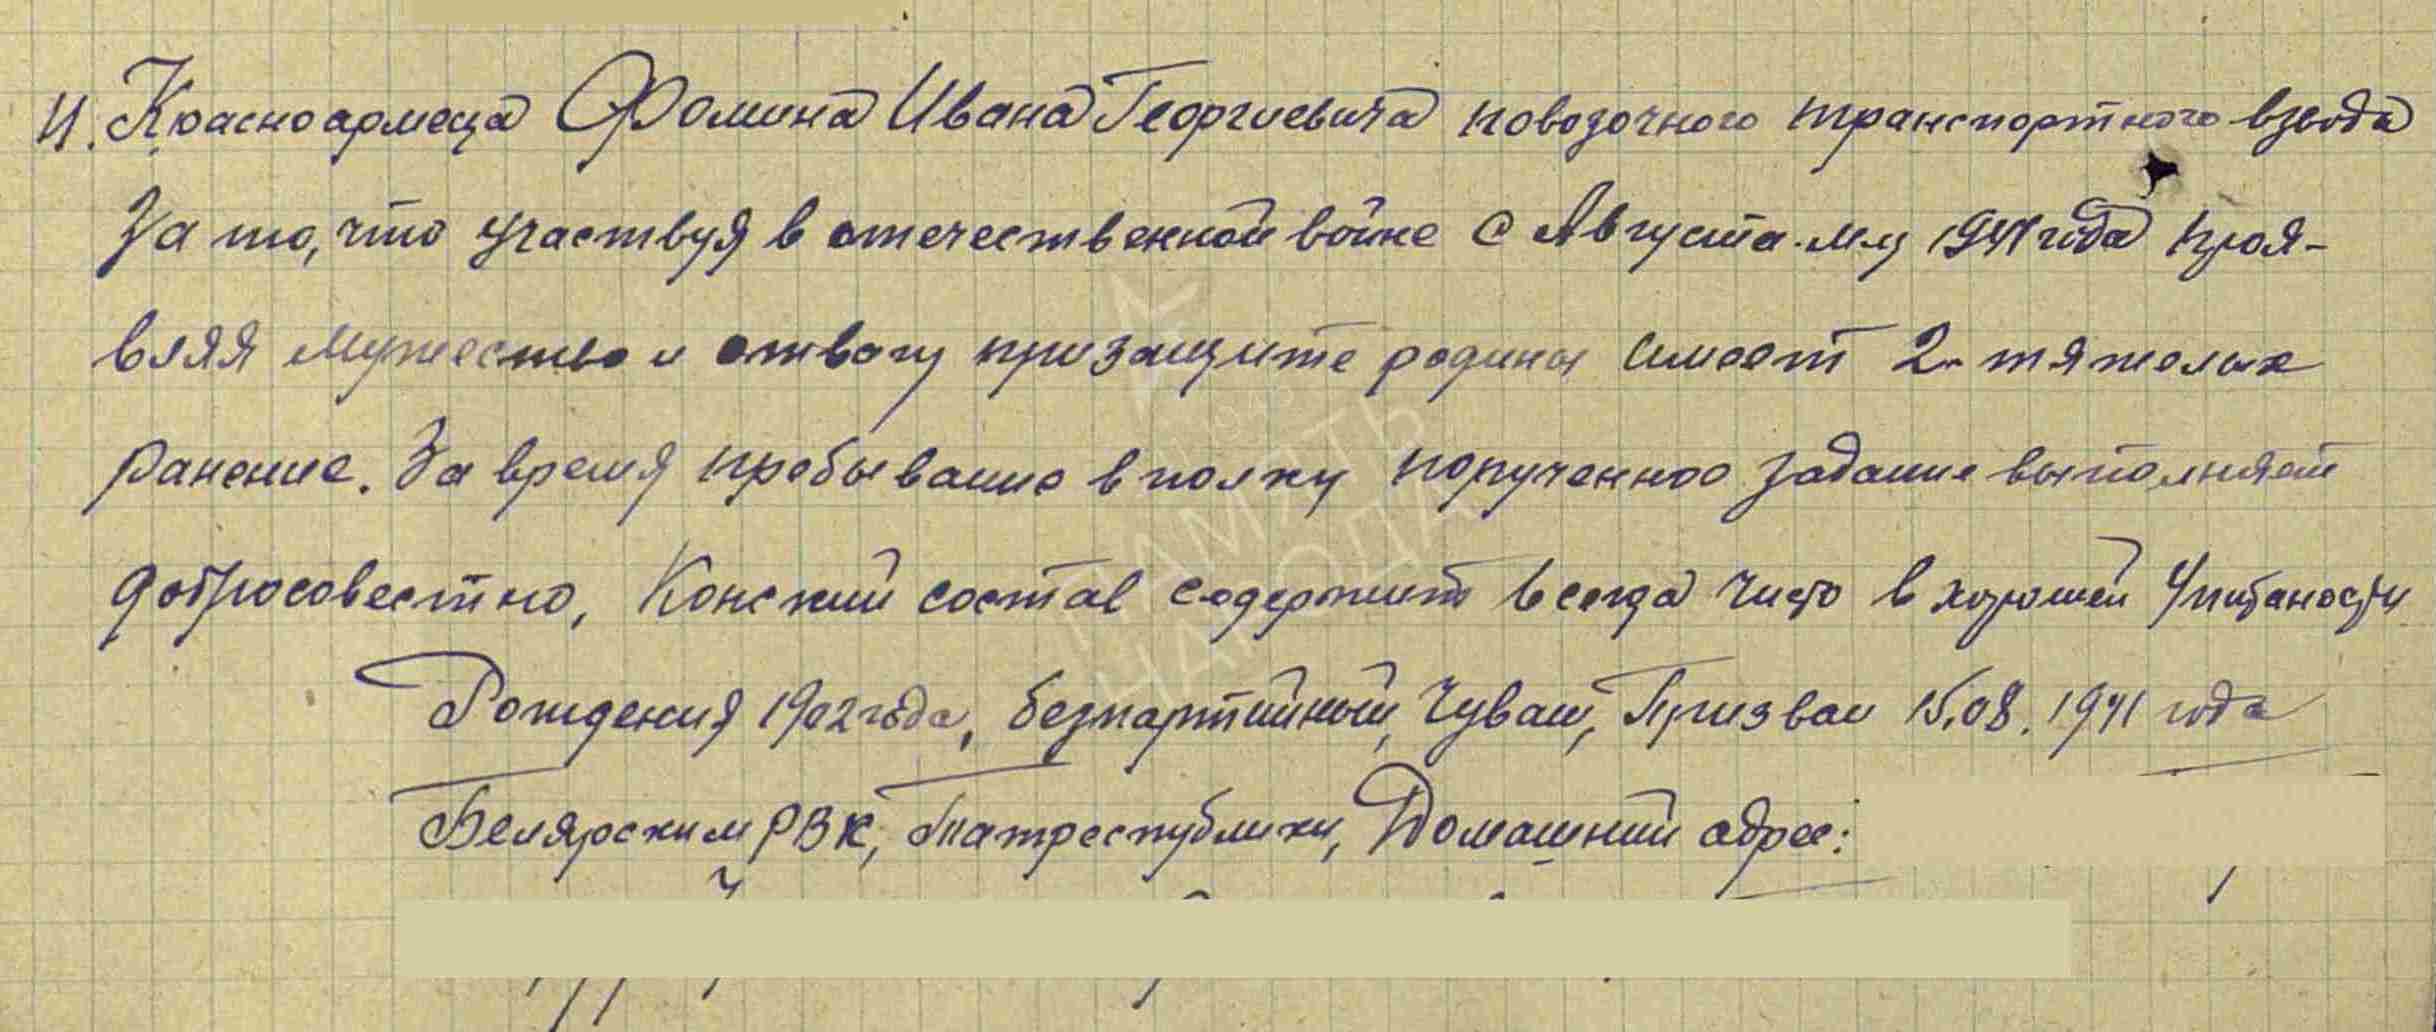 4. Красноармейца Фомина Ивана Георгиевича повозочного транспортного взвода
За то, что участвуя в отечественной войне с Августа м-ца 1941 года проя-
вляя мужество и отвагу при защите родины имеет 2-х тяжелых
ранение. За время пребывание в полку порученное задание выполняет
добросовестно, Конский состав содержит всегда чисто в хорошей Упитаности
Рождения 1902 года, безпартийный, Чуваш, Призван 15.08.1941 года
Белярским РВК, Татреспублики, Домашний адрес:
ПАМЯТЬ
НАРОДА